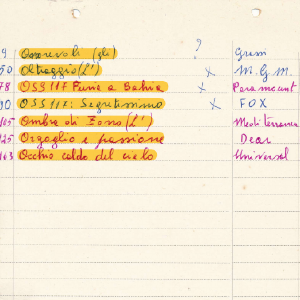 9 Onorevoli (gli) ? Gram
50 Oltraggio (l') x M.G.M.
78 OSS 117 Furia a Bahia x Paramount
90 OSS 117: Segretissimo x FOX
105 Ombra di Zorro (l') Mediterranea
125 Orgoglio e passione Dear
163 Occhio caldo del cielo Universal